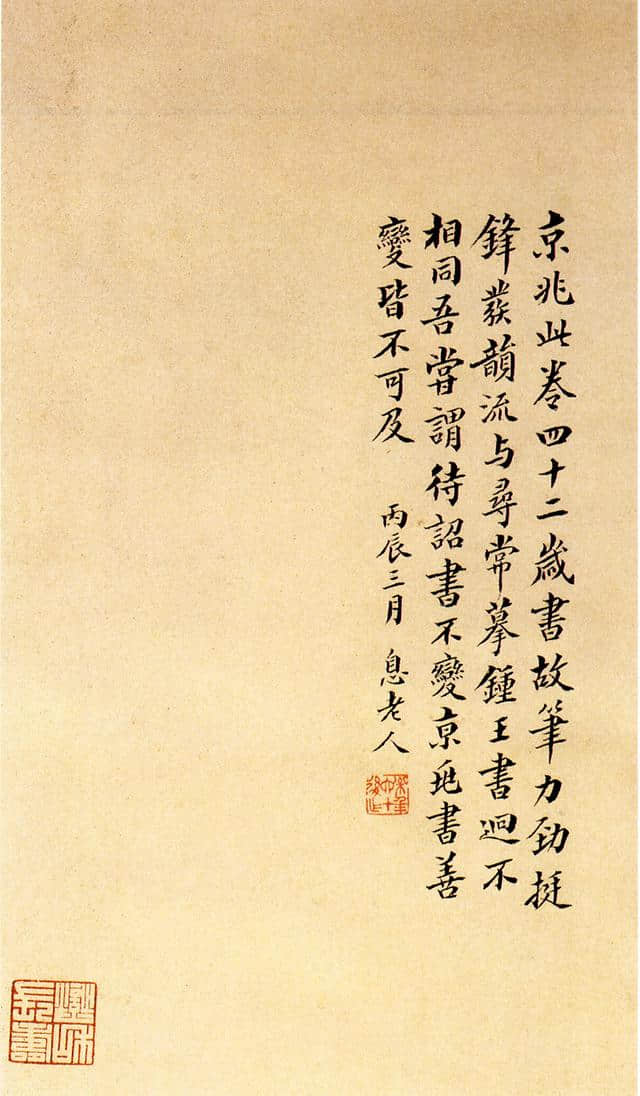 京兆此卷四十二歲書故筆力勁挺
鋒發韻流与尋常摹鍾王書迥不
相同吾嘗謂待詔書不變京兆書善
變皆不可及
丙辰三月 息老人